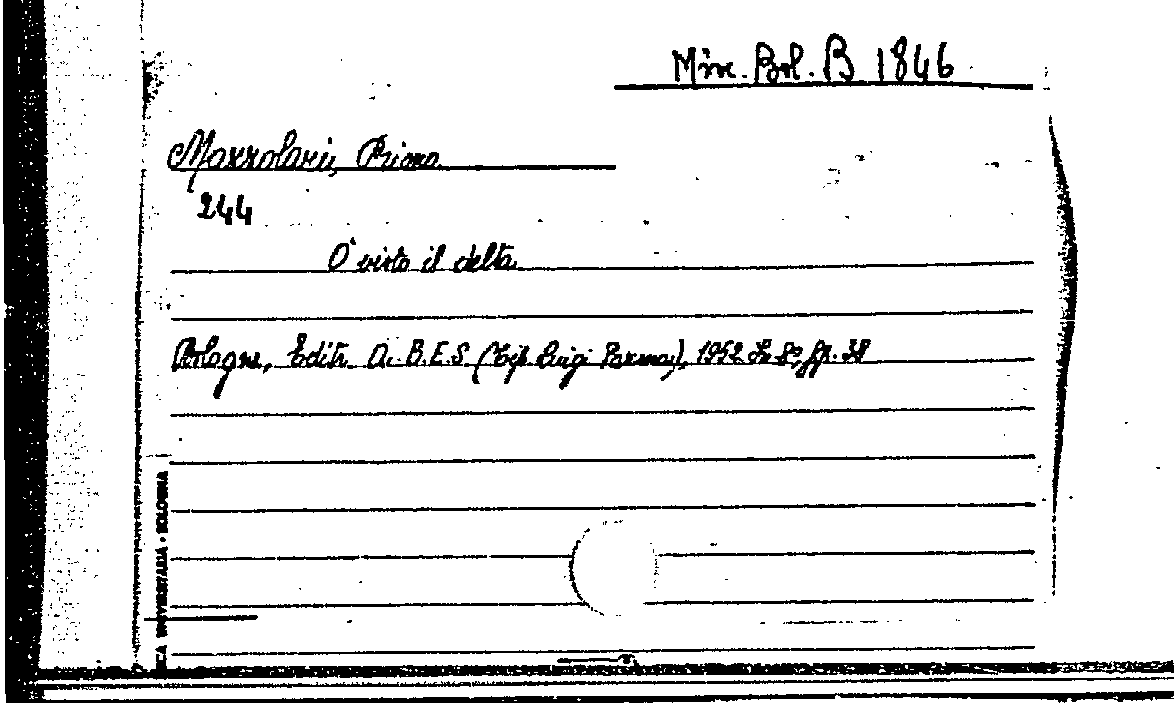 Misc. Bol. B 1846
Mazzolari, Primo
244
O' visto il delta
Bologna, Editr. A.B.E.S. (Tip. Luigi Parma), 1952 In 8°, pp. 38
CA UNIVERSITARIA • BOLOGNA